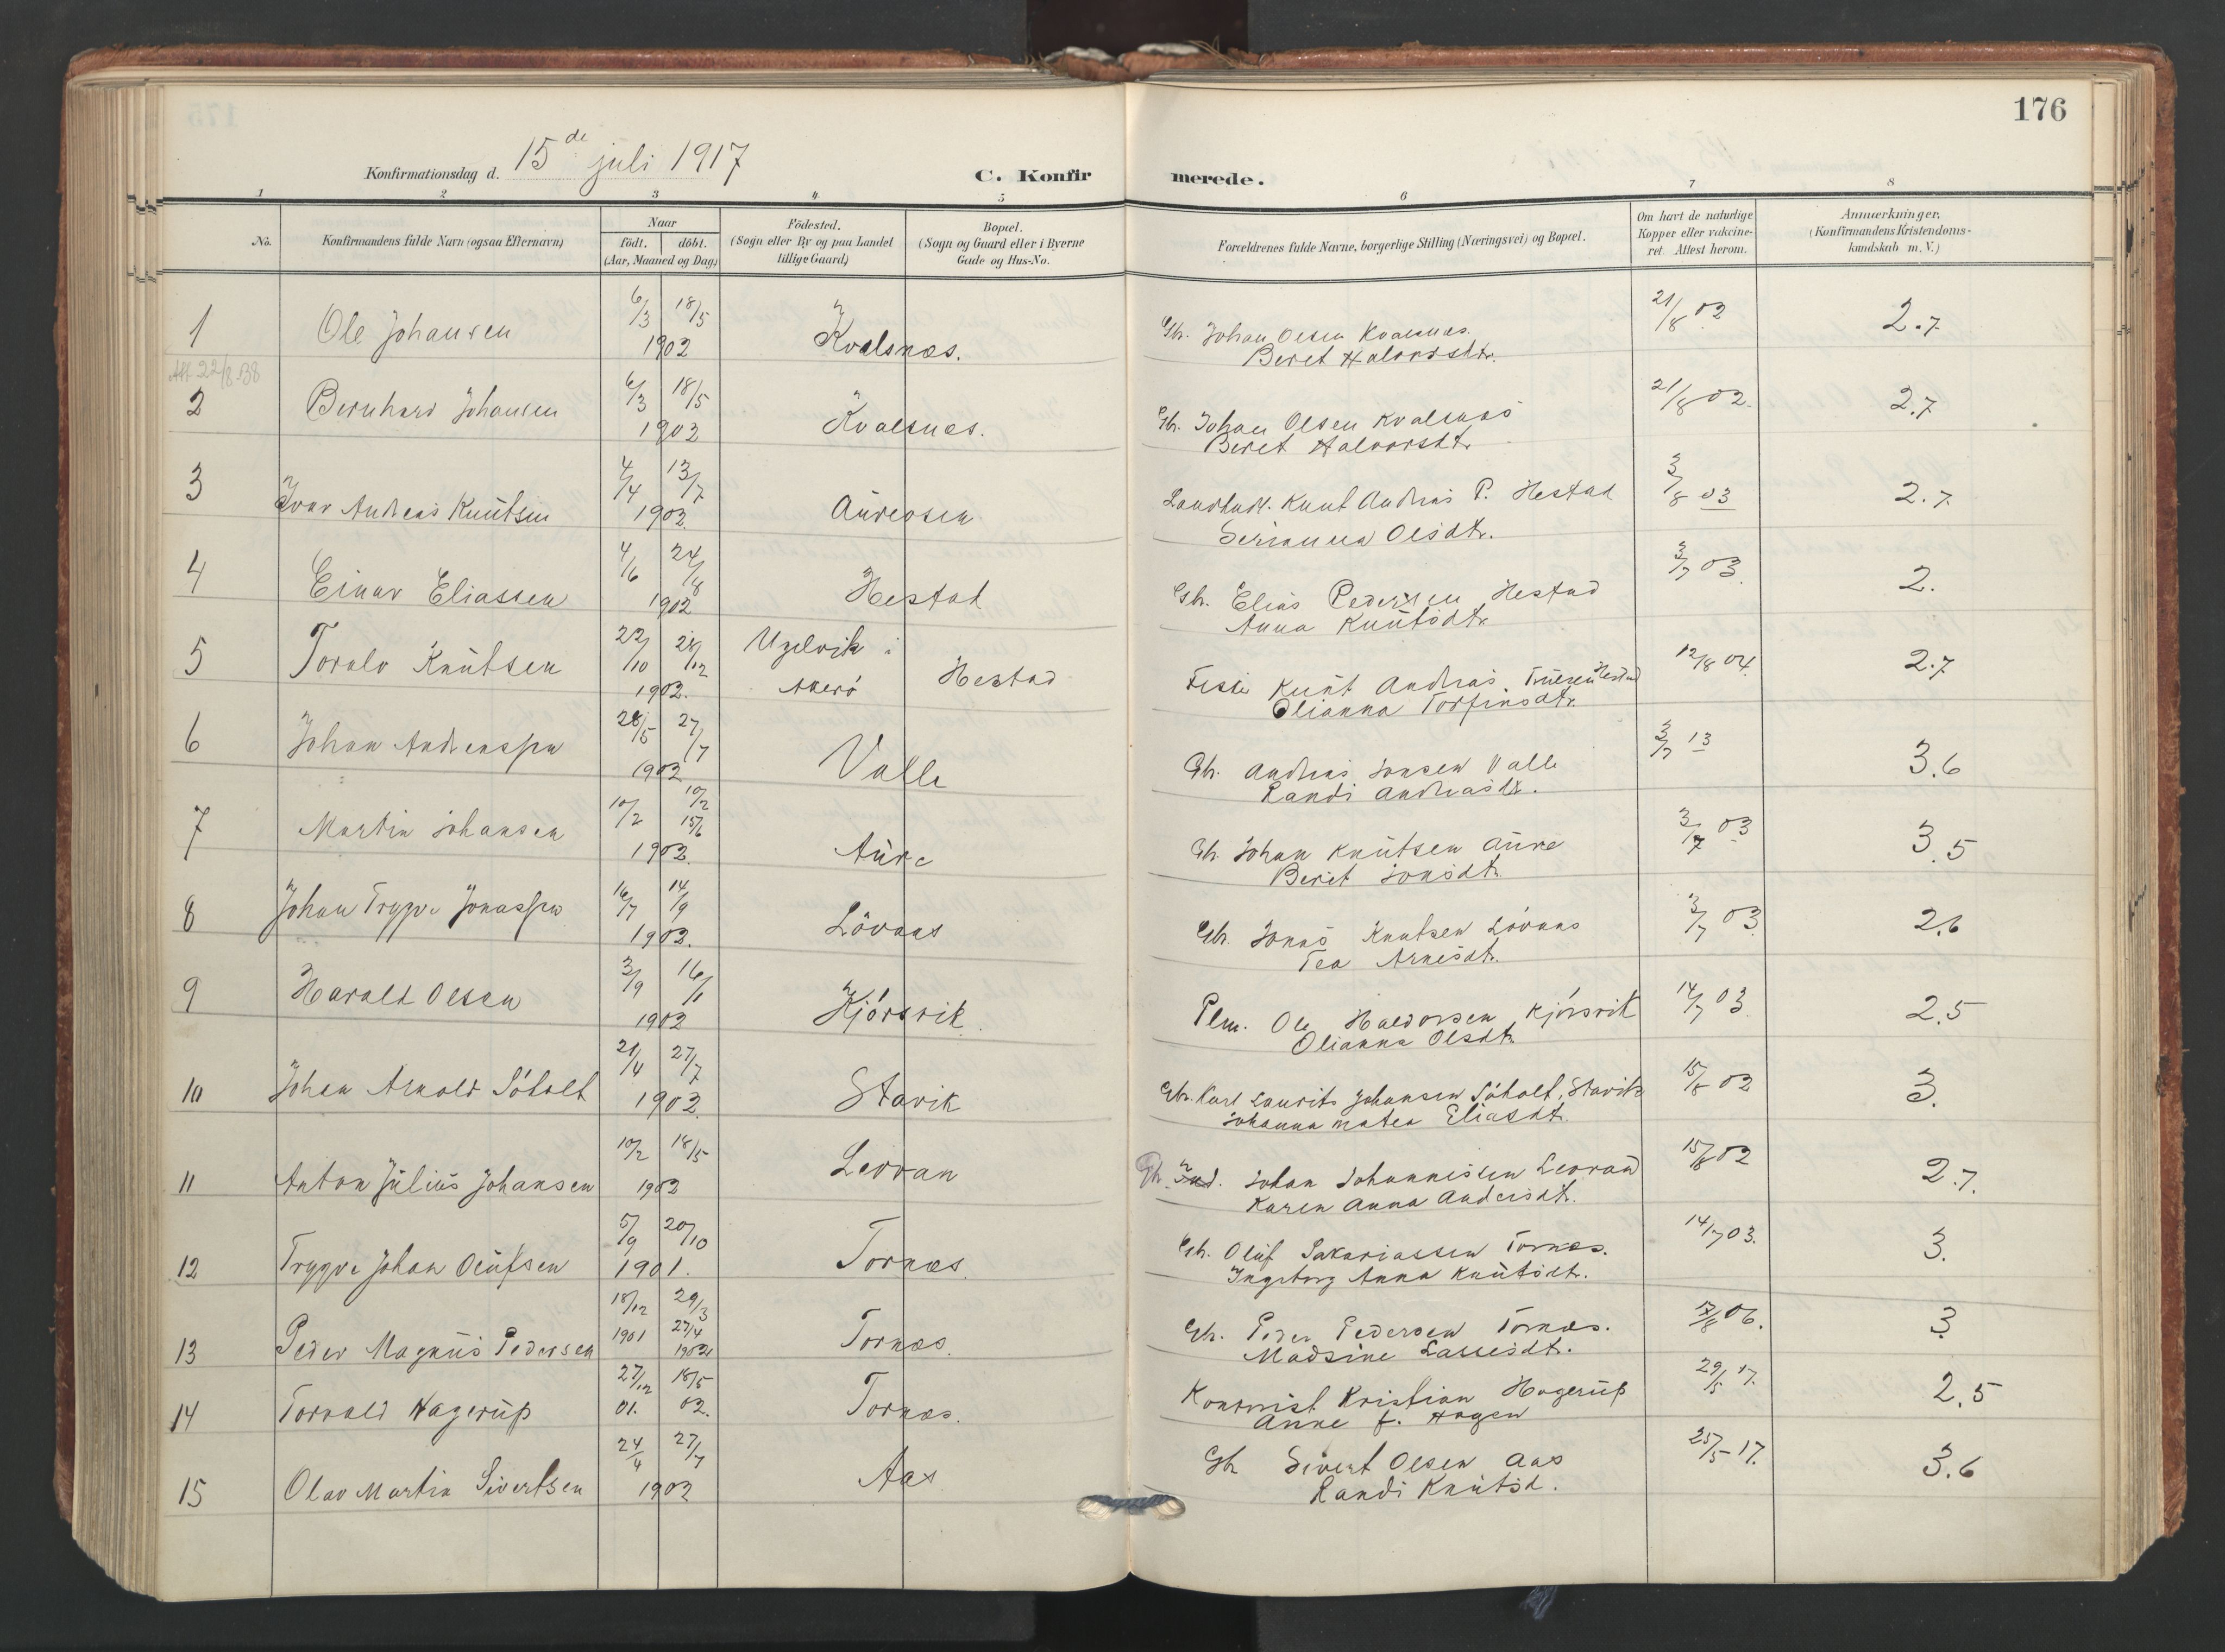 176
Konfirmationsdag d. 15de juli 1917
C. Konfirmerede.
1 2 3 4 5 6 7 8
No.
Konfirmandens fulde Navn (ogsaa Efternavn)
Naar
födt. döbt.
(Aar, Maaned og Dag)
Födested.
(Sogn eller By og paa Landet
tillige Gaard)
Bopæl.
(Sogn og Gaard eller i Byerne
Gade og Hus-No.
Forældrenes fulde Navne, borgerlige Stilling (Næringsvei) og Bopæl.
Om havt de naturlige
Kopper eller vakcine-
ret. Attest herom.
Anmærkninger.
(Konfirmandens Kristendoms-
kundskab m. V.)
1 Ole Johansen 6/3 18/5 1902 Kvalsnæs. Gbr. Johan Olsen Kvalsnæs. 21/8 02 2.7
Beret Halvorsdtr.
Att 22/8 38
2 Bernhard Johansen 6/3 18/5 1902 Kvalsnæs. Gbr. Johan Olsen Kvalsnæs 21/8 02. 2.7
Beret Halvorsdtr
3 Ivar Andreas Knütsen 4/4 13/7 1902. Aüreosen Landhdl. Knut Andreas P. Hestad 3/8 03 2.7
Serianna Olsdtr.
4 Einar Eliassen 4/6 24/8 1902 Hestad Gbr. Elias Pedersen Hestad 3/7 03. 2.
Anna Knütsdtr
5 Toralv Knütsen 22/10 28/12 1902. Ugelvik i Akerö Hestad Fisker Knüt Andreas Hestad 12/8 04. 2.7
Olianna Torfinsdtr.
6 Johan Andreassen 28/5 27/7 1902 Valle Gbr. Andreas Jonsen Valle 3/7 13 3.6
Randi Andreasdtr.
7 Martin Johansen 10/2 10/2 15/6 1902. Aüre Gbr. Johan Knütsen Aüre 3/7 03 3.5
Beret Jonsdtr.
8 Johan Trygve Jonassen 16/7 14/9 1902. Lövaas Gbr. Jonas Knutsen Lövaas 3/7 03. 2.6
Tea Arnesdtr.
9 Harald Olsen 3/9 16/11 1902 Kjörsvik. Plm. Ole Haldorsen Kjörsvik 14/7 03. 2.5
Olianna Olsdtr.
10 Johan Arnold Söholt 21/4 27/7 1902. Stavik Gbr. Karl Laurits Johansen Söholt, Stavik 15/8 02 3.
Johanna Matea Eliasdtr.
11 Anton Jülius Johansen 10/2 18/5 1902 Leovan Gbr. Johan Johannessen Leovan 15/8 02 2.7.
Karen Anna Andersdtr.
12 Trygve Johan Olüfsen 5/9 20/10 1901. Tornæs. Gbr. Olüf Sakariassen Tornæs. 14/7 03. 3.
Ingeborg Anna Knütsdtr.
13 Peder Magnüs Pedersen 18/12 1901 29/3 27/4 1902 Tornæs. Gbr. Peder Pedersen Tornæs. 17/8 06. 3
Madsine Lassesdtr.
14 Torvald Hagerüp 27/12 01. 18/5 02. Tornæs. Kristian Hagerüp 29/5 17. 2.5
Anne f. Hagen
15 Olav Martin Sivertsen 24/4 27/7 1902 Aas Gbr Sivert Olsen Aas 25/5 17. 3.6
Randi Knütsd.